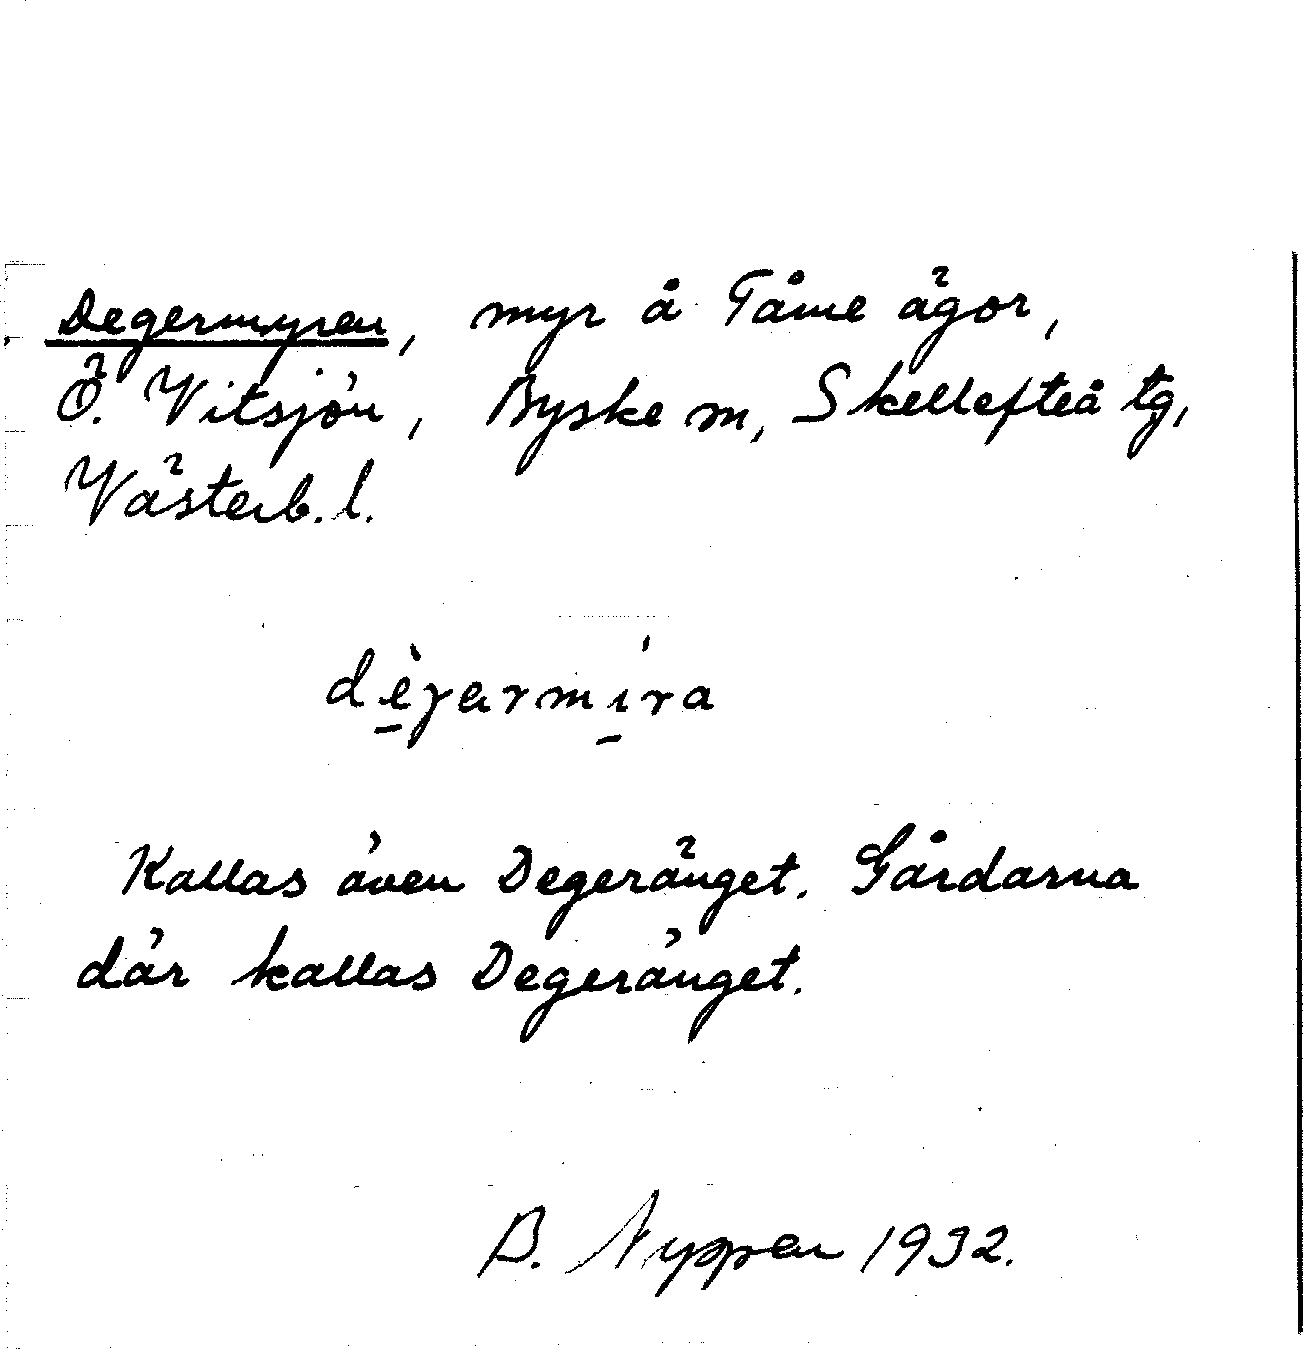 Degermyren, myr å Tåme ägor,
Ö. Vitsjön, Byske sn, Skellefteå tg,
Västerb. l.
dèɣermíra
Kallas även Degeränget. Gårdarna
där kallas Degeränget.
B. Nyppen 1932.